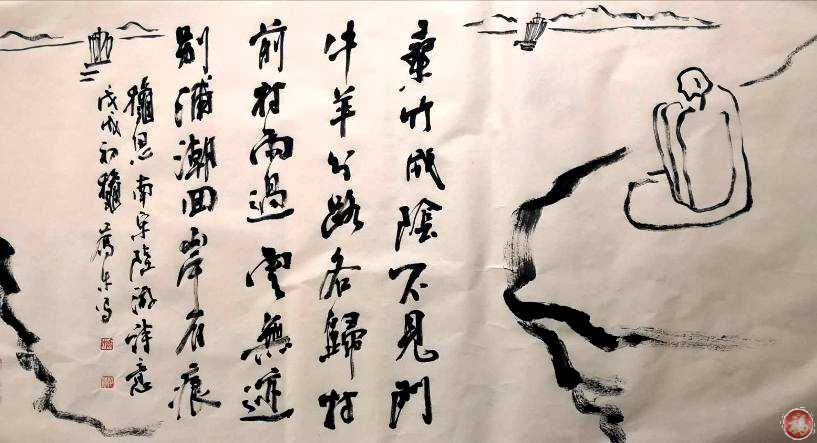 桑竹成陰不見門
牛羊分路各歸村
前村雨過雲無迹
别浦潮回岸有痕
龝思南宋陸游詩意
戊戌初龝
福